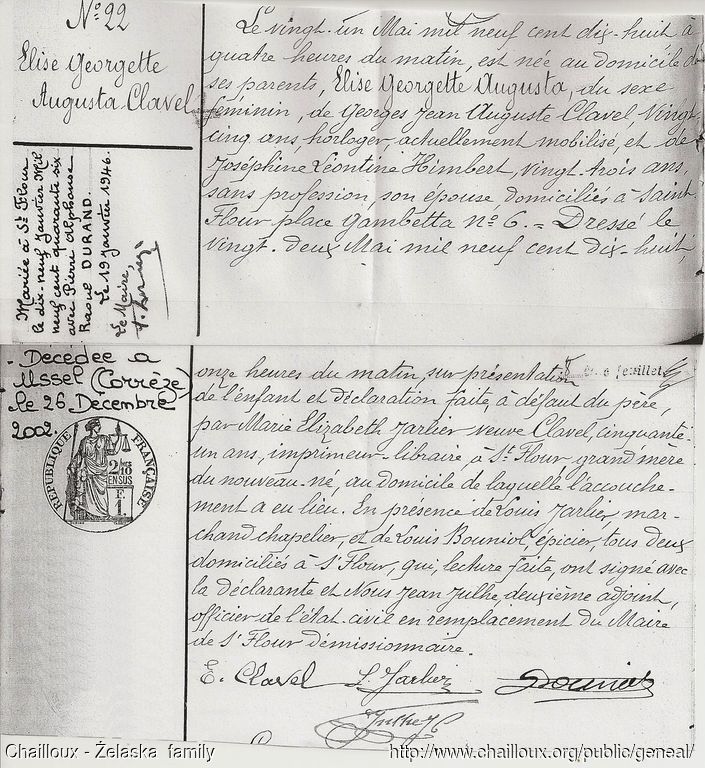 N° 22
Elise Georgette
Augusta Clavel
Mariée à St Flour
le dix-neuf Janvier Mil
neuf cent quarante six
avec Pierre Alphonse
Raoul DURAND.
Le 19 Janvier 1946.
Le Maire,
Le vingt-un Mai mil neuf cent dix-huit à
quatre heures du matin, est née au domicile de
ses parents, Elise Georgette Augusta, du sexe
féminin, de Georges Jean Auguste Clavel vingt
cinq ans horloger, actuellement mobilisé, et de
Joséphine Léontine Himbert, vingt trois ans,
sans profession, son épouse, domiciliés à Saint
Flour place Gambetta n° 6. = Dressé le
vingt-deux Mai mil neuf cent dix-huit,
Décédée à
Ussel (Corrèze)
le 26 Décembre
2002.
RÉPUBLIQUE FRANÇAISE
2/10
EN SUS
F.
1.
feuillet
onze heures du matin, sur présentation
de l'enfant et déclaration faite, à défaut du père,
par Marie Elizabeth Jarlier veuve Clavel, cinquante-
un ans, imprimeur-libraire, à St Flour, grand mère
du nouveau-né, au domicile de laquelle l'accouche-
ment a eu lieu. En présence de Louis Jarlier, mar-
chand chapelier, et de Louis Bouniol, épicier, tous deux
domiciliés à St Flour, qui, lecture faite, ont signé avec
la déclarante et Nous Jean Julhe, deuxième adjoint,
officier de l'état-civil en remplacement du Maire
de St Flour démissionnaire.
E. Clavel L. Jarlier Bouniol
Julhe J
Chailloux - Żelaska family
http://www.chailloux.org/public/geneal/